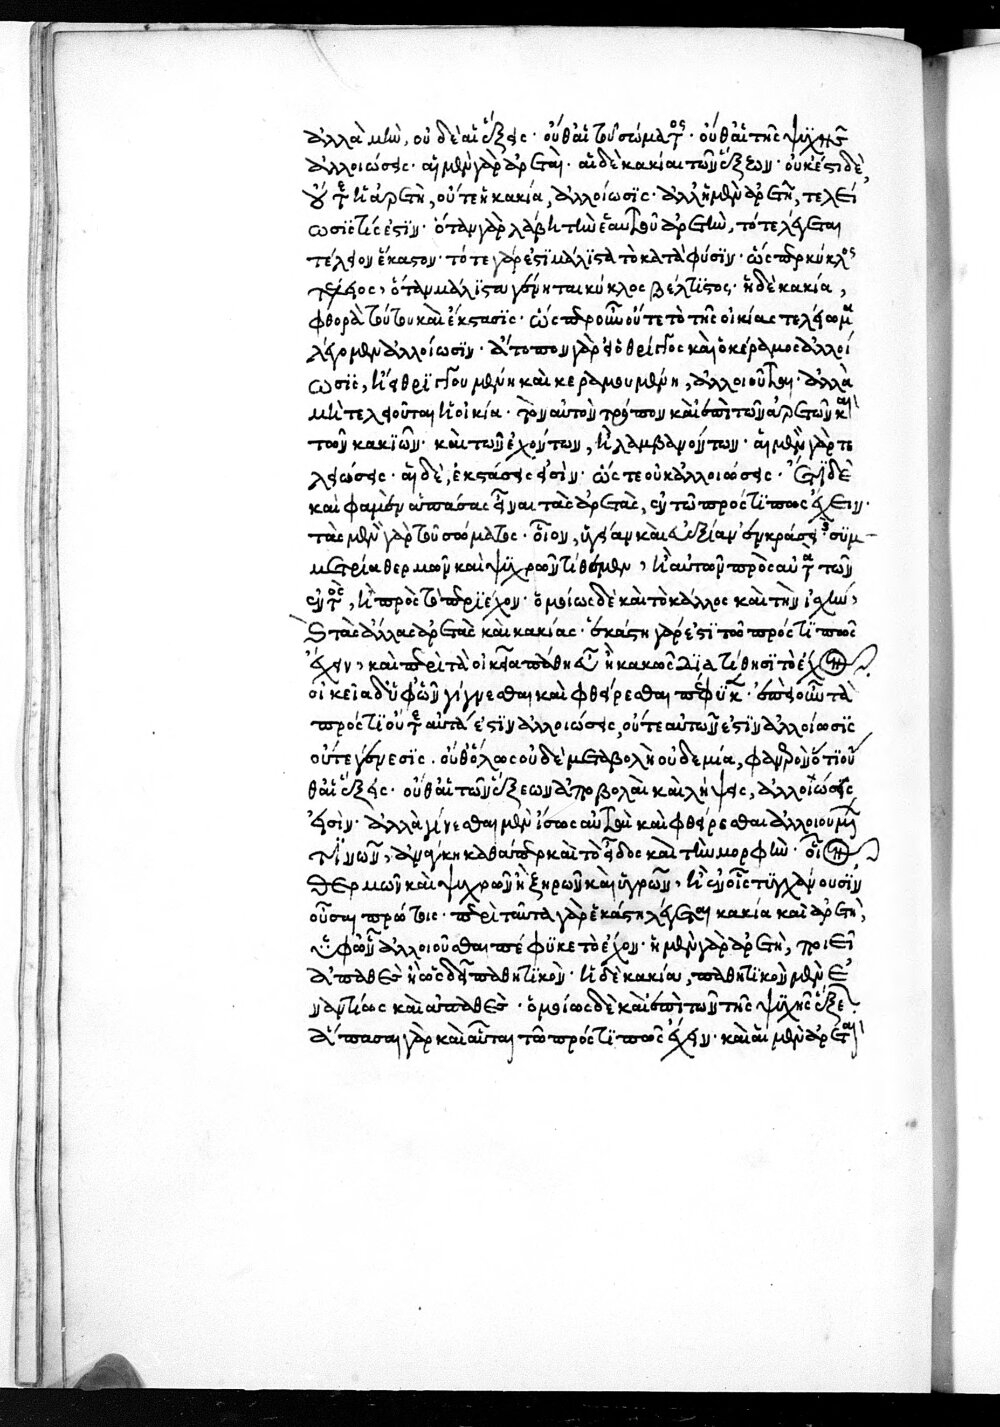 ἀλλὰ μὴν, οὐδὲ αἱ ἕξεις· οὔθ' αἱ τοῦ σώματος· οὔθ' αἱ τῆς ψυχῆς
ἀλλοιώσεις· αἱ μὲν γὰρ ἀρεταὶ· αἱ δὲ κακίαι τῶν ἕξεων· οὐκ ἔστι δὲ,
οὔτε ἡ ἀρετὴ, οὔτε ἡ κακία, ἀλλοίωσις· ἀλλ' ἡ μὲν ἀρετὴ, τελεί
ωσις τίς ἐστιν· ὅταν γὰρ λάβῃ τὴν ἑαυτοῦ ἀρετὴν, τότε λέγεται
τέλειον ἕκαστον· τότε γάρ ἐστι μάλιστα τὸ κατὰ φύσιν· ὥσπερ κύκλος
τέλειος, ὅταν μάλιστα γένηται κύκλος βέλτιστος· ἡ δὲ κακία,
φθορὰ τούτου καὶ ἔκστασις· ὥσπερ οὖν οὔτε τὸ τῆς οἰκίας τελείωμα
λέγομεν ἀλλοίωσιν· ἄτοπον γὰρ εἰ ὁ θριγκὸς καὶ ὁ κέραμος ἀλλοί
ωσις, ἢ εἰ θριγκουμένη καὶ κεραμουμένη, ἀλλοιοῦται· ἀλλὰ
μὴ τελειοῦται ἡ οἰκία· τὸν αὐτὸν τρόπον καὶ ἐπὶ τῶν ἀρετῶν καὶ
τῶν κακιῶν· καὶ τῶν ἐχόντων, ἢ λαμβανόντων· αἱ μὲν γὰρ τε
λειώσεις· αἱ δὲ, ἐκστάσεις εἰσὶν· ὥστε οὐκ ἀλλοιώσεις· ἔτι δὲ
καὶ φαμὲν ἁπάσας εἶναι τὰς ἀρετὰς, ἐν τῷ πρός τι πως ἔχειν·
τὰς μὲν γὰρ τοῦ σώματος· οἷον, ὑγείαν καὶ εὐεξίαν ἐν κράσει συμ-
μετρία θερμῶν καὶ ψυχρῶν τίθεμεν, ἢ αὐτῶν πρὸς αὑτὰ τῶν
ἐντὸς, ἢ πρὸς τὸ περιέχον· ὁμοίως δὲ καὶ τὸ κάλλος καὶ τὴν ἰσχὺν,
καὶ τὰς ἄλλας ἀρετὰς καὶ κακίας· ἑκάστη γάρ ἐστι τῷ πρός τι πως
ἔχειν, καὶ περὶ τὰ οἰκεῖα πάθη εὖ ἢ κακῶς διατίθησι τὸ ἔχον
οἰκεῖα δ' ὑφ' ὧν γίγνεσθαι καὶ φθείρεσθαι πέφυκεν· ἐπεὶ οὖν τὰ
πρός τι οὔτε αὐτά ἐστιν ἀλλοιώσεις, οὔτε αὐτῶν ἐστιν ἀλλοίωσις
οὔτε γένεσις· οὔθ' ὅλως οὐδὲ μεταβολὴ οὐδεμία, φανερὸν ὅτι οὔ
θ' αἱ ἕξεις· οὔθ' αἱ τῶν ἕξεων ἀποβολαὶ καὶ λήψεις, ἀλλοιώσεις
εἰσὶν· ἀλλὰ γίνεσθαι μὲν ἴσως αὐτὰς καὶ φθείρεσθαι ἀλλοιουμένων
τινῶν, ἀνάγκη καθάπερ καὶ τὸ εἶδος καὶ τὴν μορφὴν· οἷον
θερμῶν καὶ ψυχρῶν ἢ ξηρῶν καὶ ὑγρῶν, ἢ ἐν οἷς τυγχάνουσιν
οὖσαι πρώτοις· περὶ ταῦτα γὰρ ἑκάστη λέγεται κακία καὶ ἀρετὴ,
ὑφ' ὧν ἀλλοιοῦσθαι πέφυκε τὸ ἔχον· ἡ μὲν γὰρ ἀρετὴ, ποιεῖ
ἀπαθὲς ἢ ὡς δεῖ παθητικὸν· ἡ δὲ κακία, παθητικὸν μὲν ἐ
ναντίως καὶ ἀπαθὲς· ὁμοίως δὲ καὶ ἐπὶ τῶν τῆς ψυχῆς ἕξεων
ἅπασαι γὰρ καὶ αὗται τῷ πρός τι πως ἔχειν· καὶ αἱ μὲν ἀρεταὶ